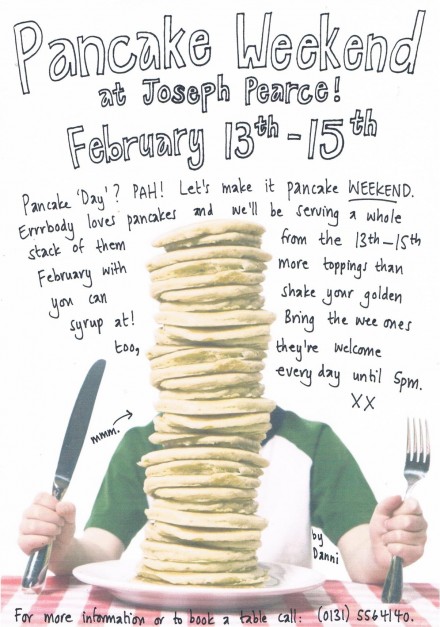 Pancake Weekend
at Joseph Pearce!
February 13th - 15th
Pancake 'Day'? PAH! Let's make it pancake WEEKEND.
Errrbody loves pancakes and we'll be serving a whole
stack of them from the 13th-15th
February with more toppings than
you can shake your golden
syrup at! Bring the wee ones
too, they're welcome
every day until 5pm.
XX
mmm.
by
Danni
For more information or to book a table call: (0131) 5564140.